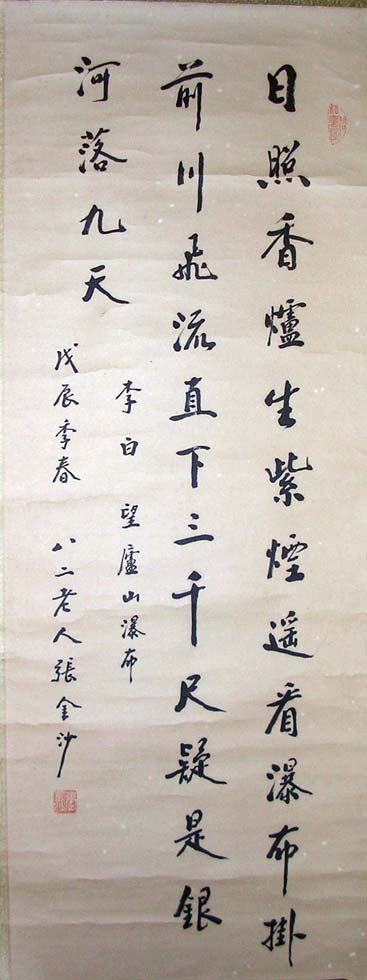 日照香爐生紫煙遥看瀑布掛
前川飛流直下三千尺疑是銀
河落九天
李白 望廬山瀑布
戊辰季春 八二老人張金沙